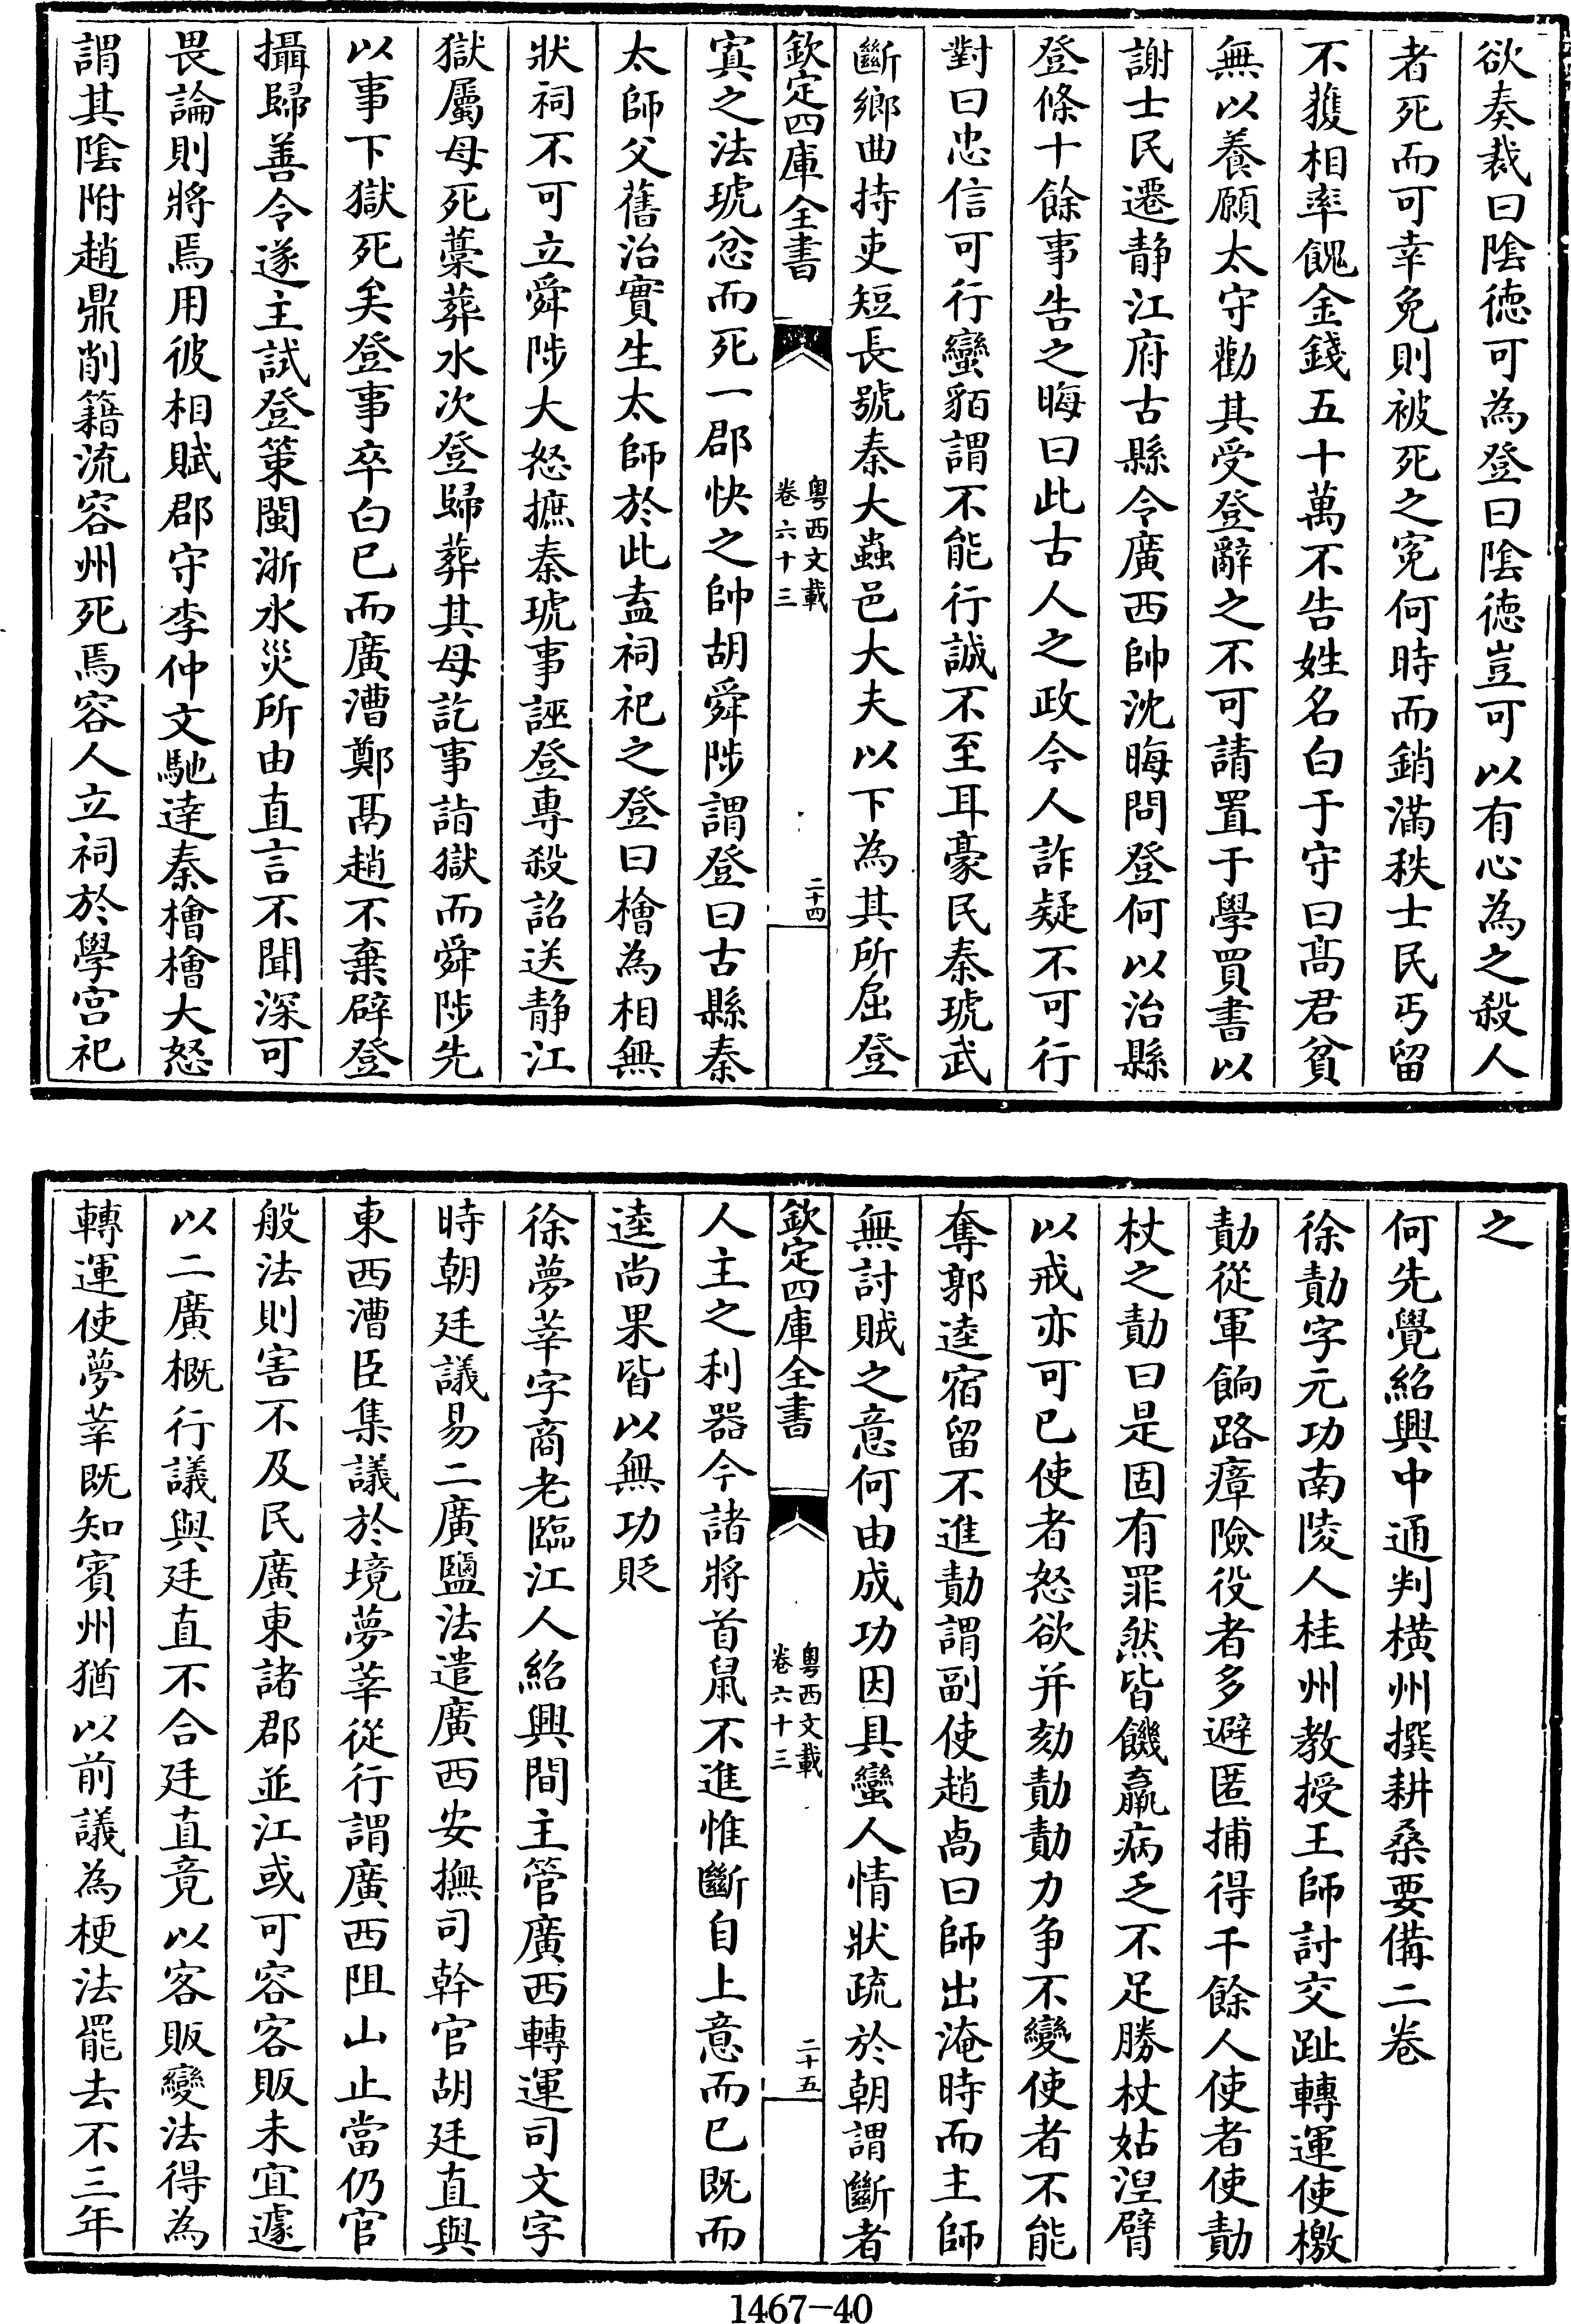 欲奏裁曰陰徳可為登曰陰徳豈可以有心為之殺人
者死而可幸免則被死之寃何時而銷滿秩士民丐留
不獲相率餽金錢五十萬不告姓名白于守曰髙君貧
無以養願太守勸其受登辭之不可請置于學買書以
謝士民遷静江府古縣令廣西帥沈晦問登何以治縣
登條十餘事告之晦曰此古人之政今人詐疑不可行
對曰忠信可行蠻貊謂不能行誠不至耳豪民秦琥武
斷鄉曲持吏短長號秦大蟲邑大夫以下為其所屈登
欽定四庫全書
粤西文載
卷六十三
二十四
寘之法琥忿而死一郡快之帥胡舜陟謂登曰古縣秦
太師父舊治實生太師於此盍祠祀之登曰檜為相無
狀祠不可立舜陟大怒摭秦琥事誣登專殺詔送静江
獄屬母死藁葬水次登歸葬其母訖事詣獄而舜陟先
以事下獄死矣登事卒白已而廣漕鄭鬲趙不棄辟登
攝歸善令遂主試登策閩浙水災所由直言不聞深可
畏論則將焉用彼相賦郡守李仲文馳達秦檜檜大怒
謂其陰附趙鼎削籍流容州死焉容人立祠於學宫祀
之
何先覺紹興中通判横州撰耕桑要備二巻
徐勣字元功南陵人桂州教授王師討交趾轉運使檄
勣從軍餉路瘴險役者多避匿捕得千餘人使者使勣
杖之勣曰是固有罪然皆饑羸病乏不足勝杖姑湼臂
以戒亦可已使者怒欲并劾勣勣力争不變使者不能
奪郭逵宿留不進勣謂副使趙卨曰師出淹時而主師
無討賊之意何由成功因具蠻人情狀疏於朝謂斷者
欽定四庫全書
粤西文載
卷六十三
二十五
人主之利器今諸將首鼠不進惟斷自上意而已既而
逵尚果皆以無功貶
徐夢莘字商老臨江人紹興間主管廣西轉運司文字
時朝廷議易二廣鹽法遣廣西安撫司幹官胡廷直與
東西漕臣集議於境夢莘從行謂廣西阻山止當仍官
般法則害不及民廣東諸郡並江或可容客販未宜遽
以二廣概行議與廷直不合廷直竟以客販變法得為
轉運使夢莘既知賓州猶以前議為梗法罷去不三年
1467-40